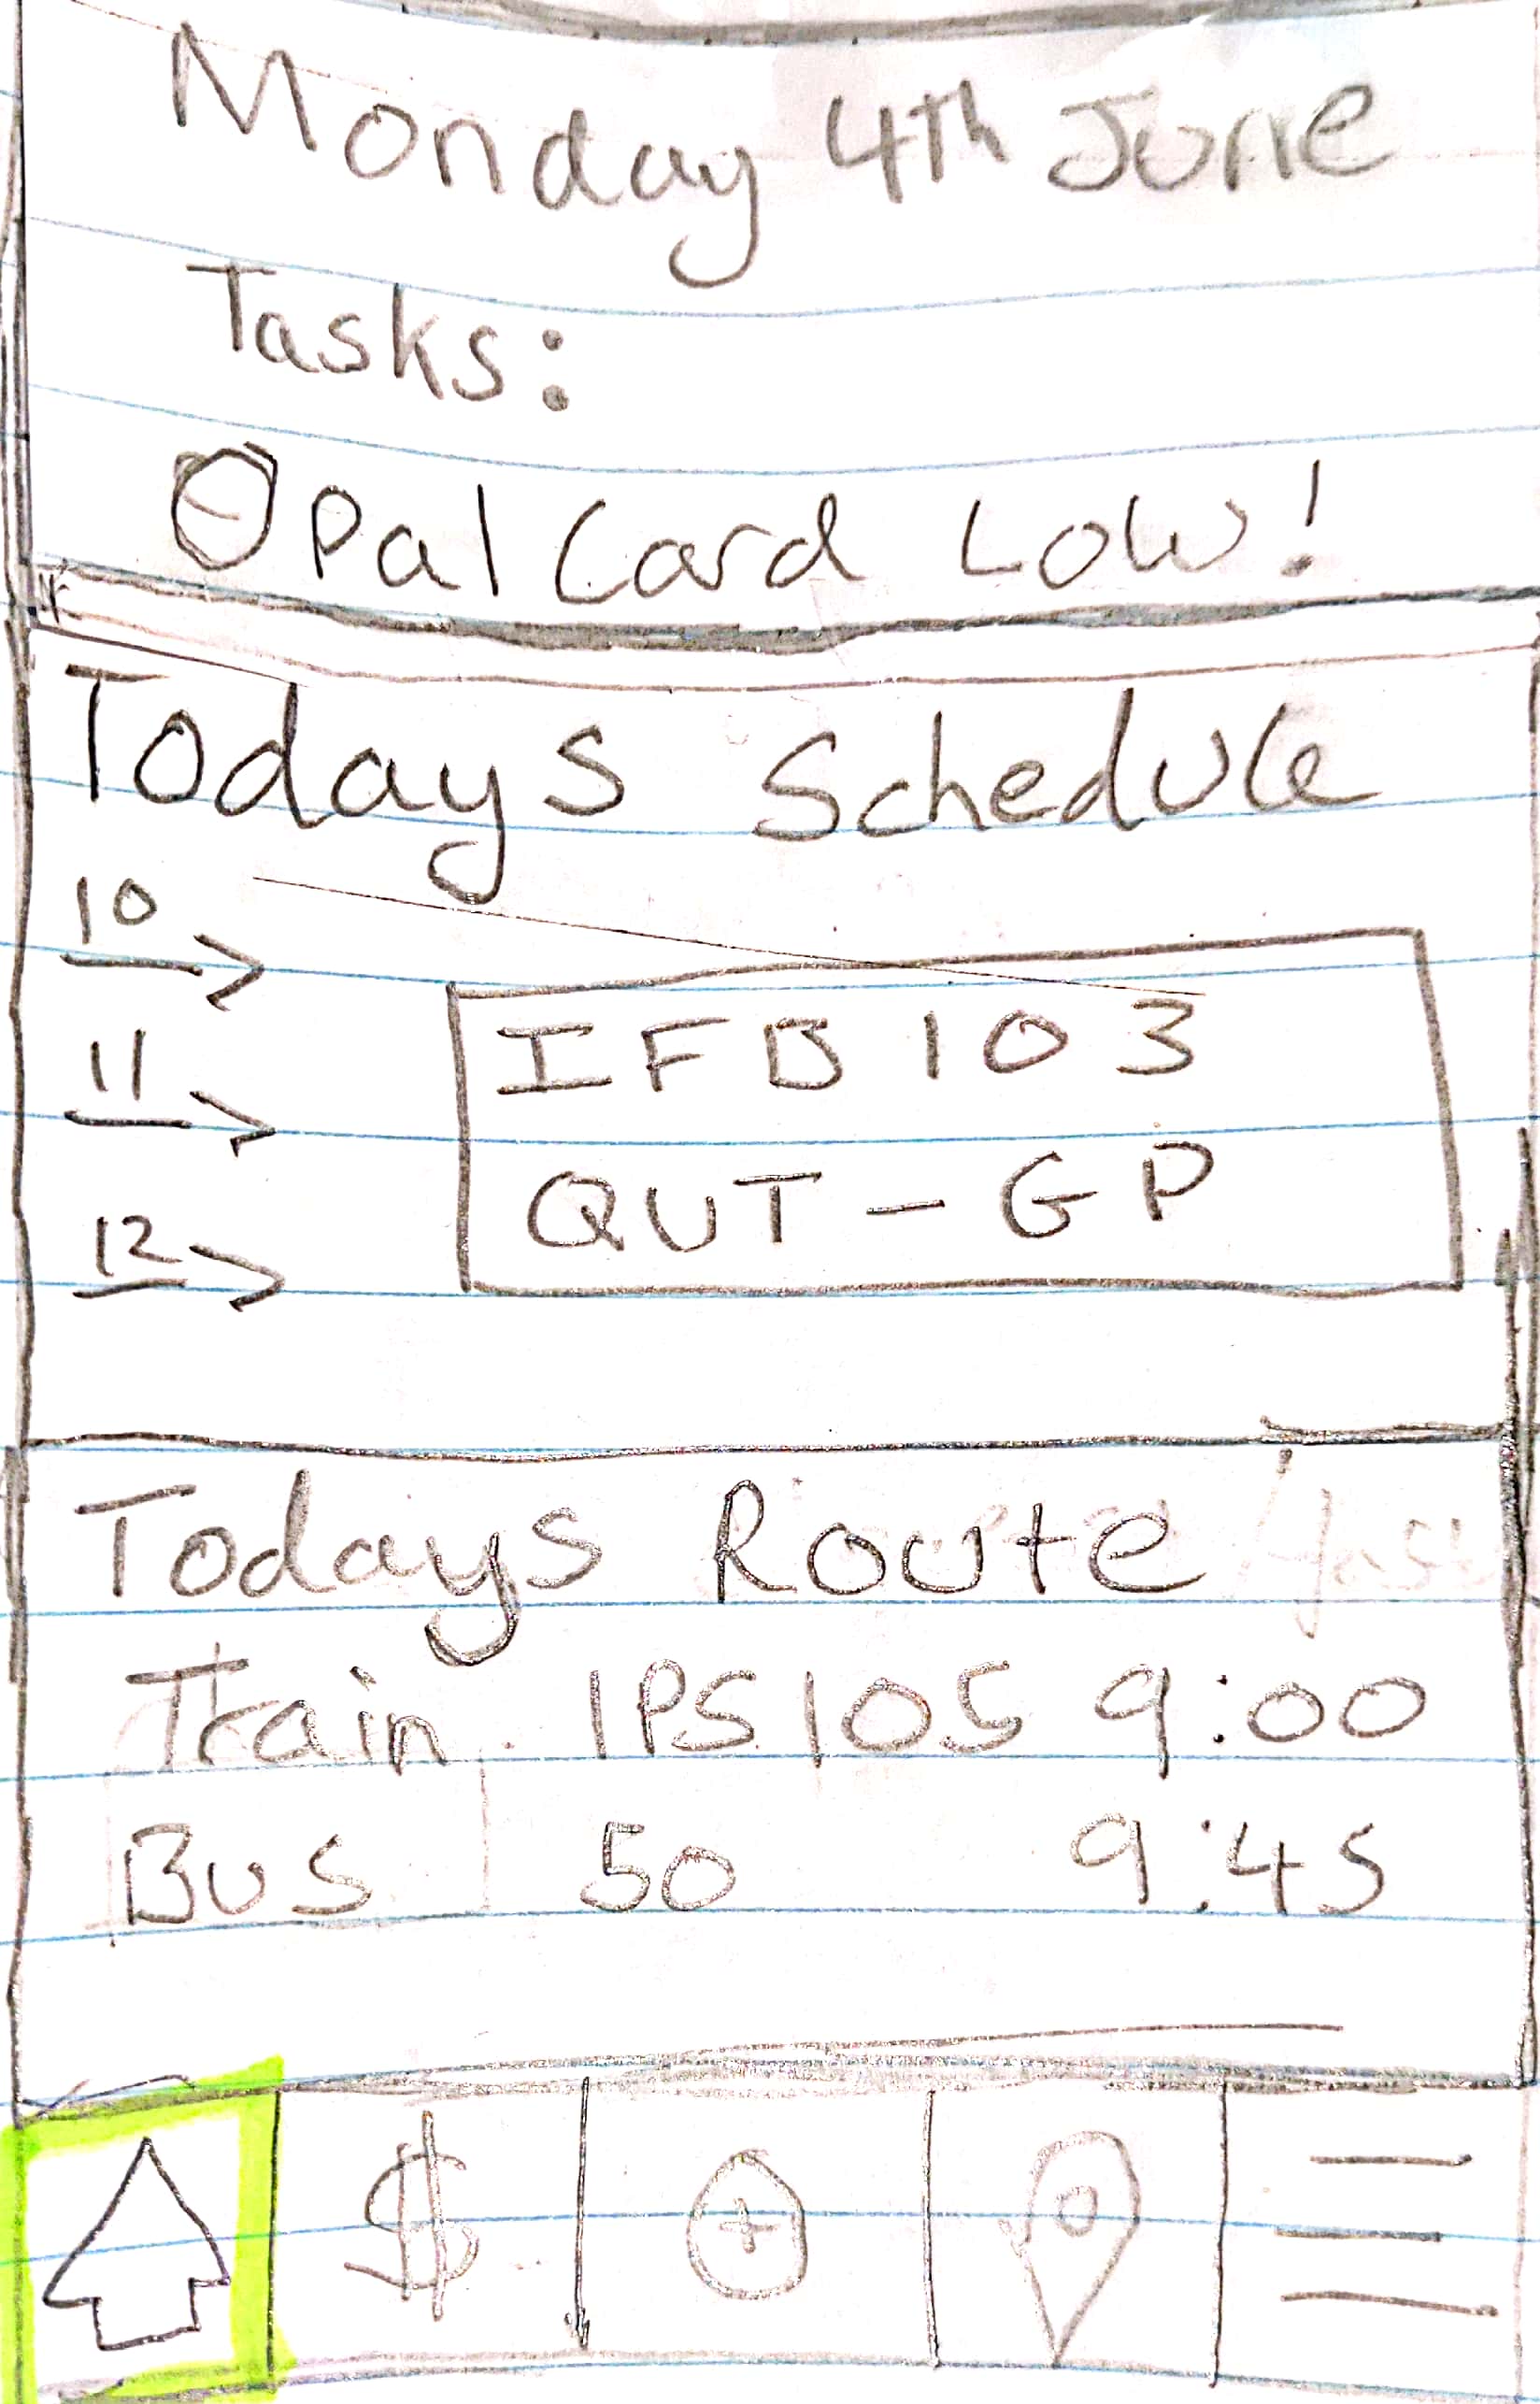 Monday 4th June
Tasks:
Opal Card Low!
Todays Schedule
10
11
12
IFB 103
QUT - GP
Todays Route
Train IPS105 9:00
Bus 50 9:45
$
+